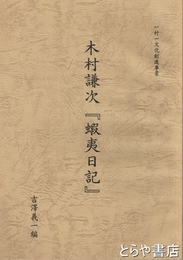 一村一文化創造事業
木村謙次『蝦夷日記』
吉澤義一編
とらや書店